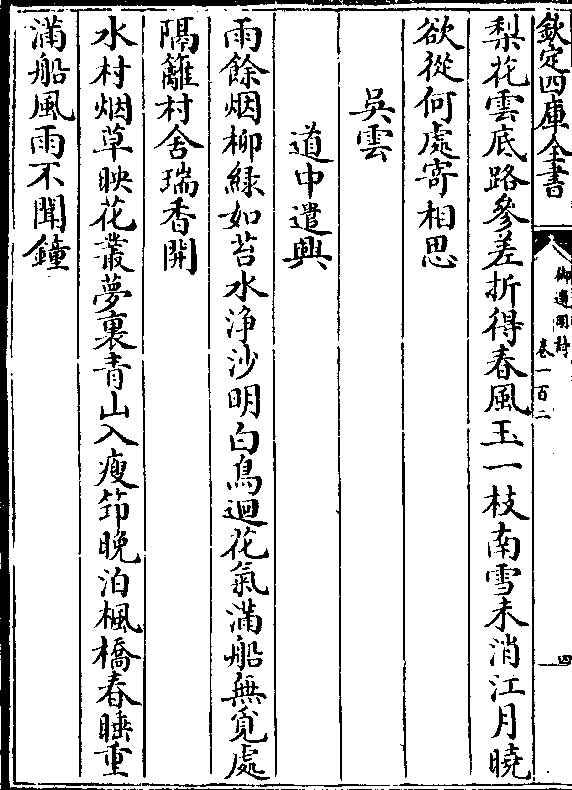 欽定四庫全書
御選明詩
卷一百二
四
梨花雲底路參差折得春風玉一枝南雪未消江月曉
欲從何處寄相思
吳雲
道中遣興
雨餘烟柳緑如苔水浄沙明白鳥迴花氣滿船無覓處
隔籬村舍瑞香開
水村烟草映花叢夢裏青山入瘦笻晚泊楓橋春睡重
滿船風雨不聞鐘